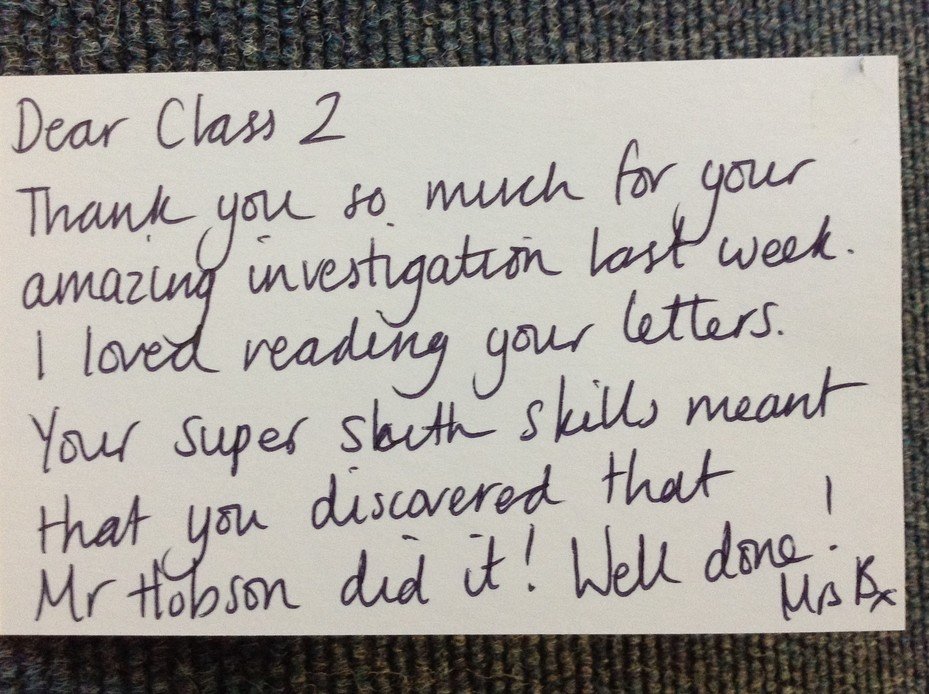 Dear Class 2
Thank you so much for your
amazing investigation last week.
I loved reading your letters.
Your super sleuth skills meant
that you discovered that
Mr Hobson did it! Well done!
Mrs B x